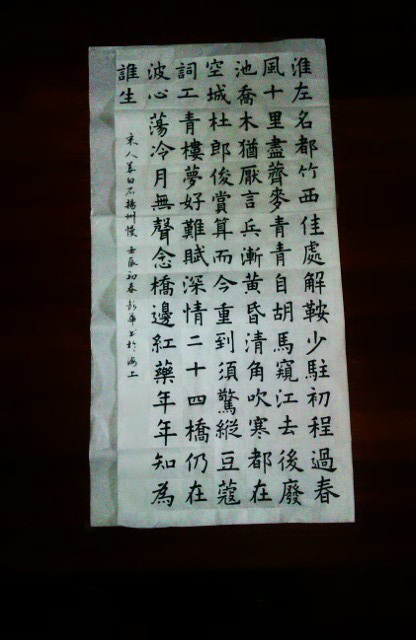 淮左名都竹西佳處解鞍少駐初程過春
風十里盡薺麥青青自胡馬窺江去後廢
池喬木猶厭言兵漸黃昏清角吹寒都在
空城杜郎俊賞算而今重到須驚縱豆蔻
詞工青樓夢好難賦深情二十四橋仍在
波心蕩冷月無聲念橋邊紅藥年年知為
誰生
宋人姜白石揚州慢 壬辰初春 書於海上